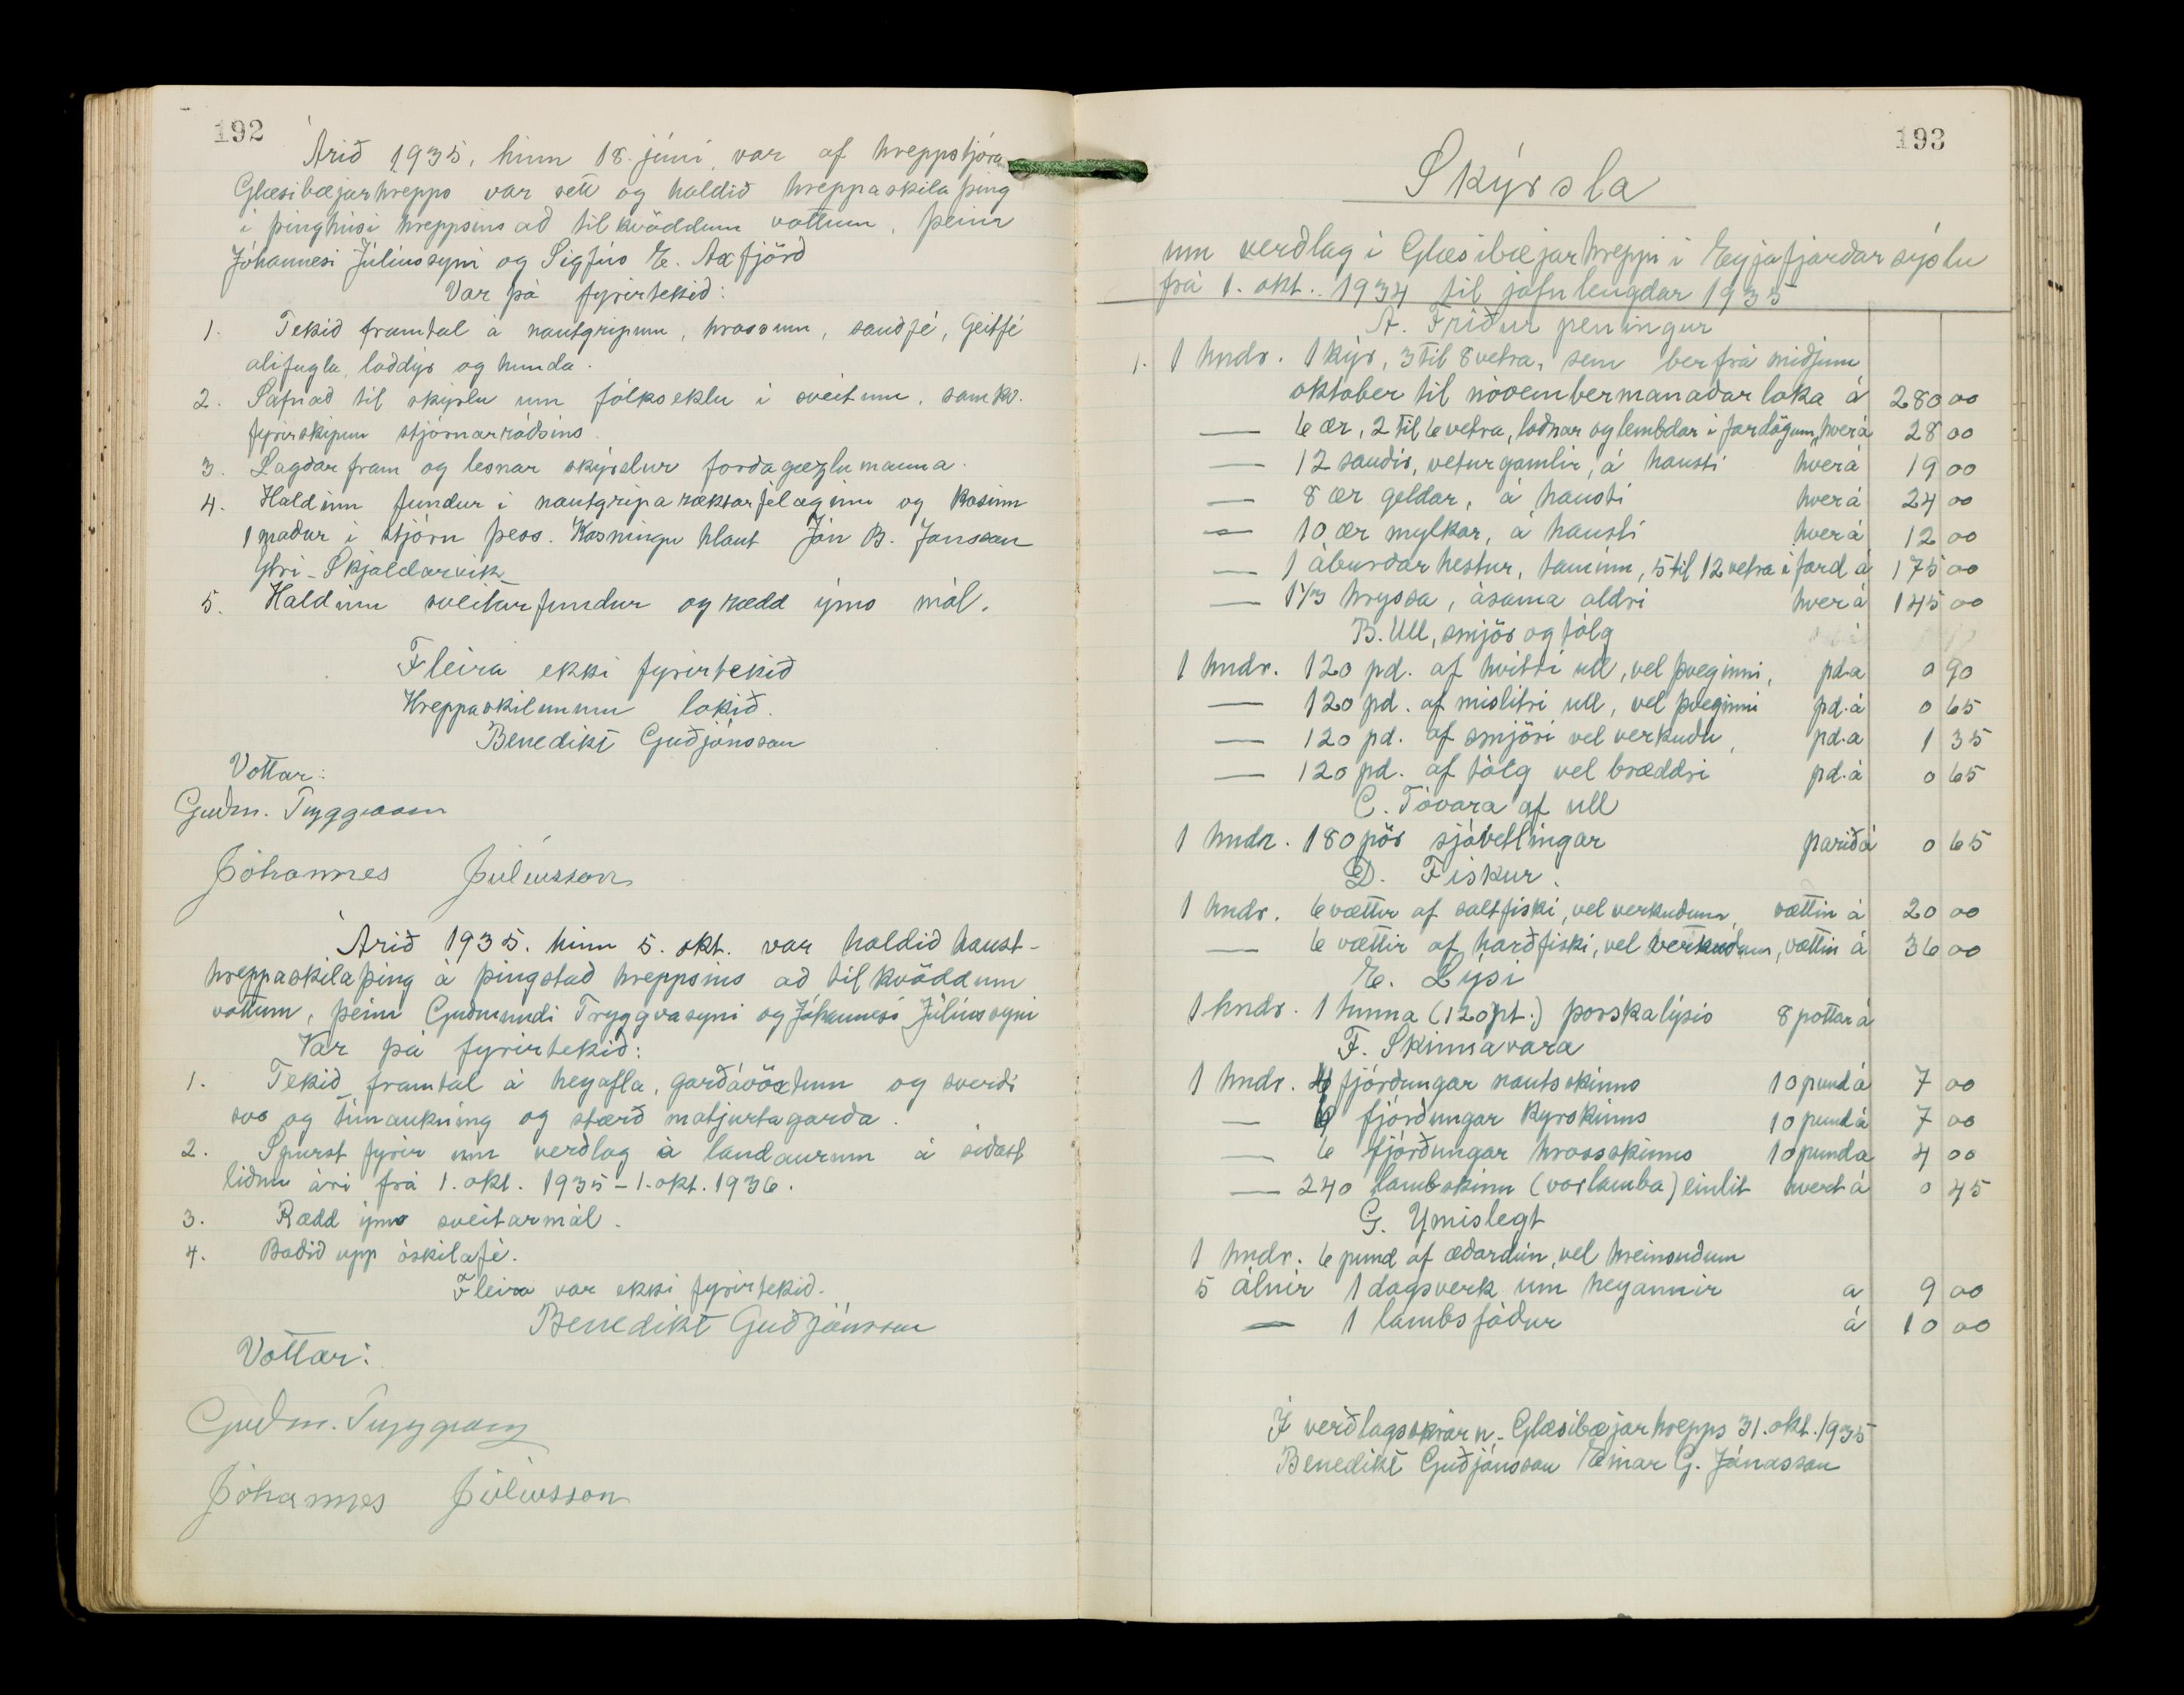 192
Árið 1935, hinn 18. júní var af hreppstjóra
Glæsibæjarhrepps var sett og haldið hreppaskilaþing
í þinghúsi hreppsins að tilkvöddum vottum, þeim
Jóhannesi Júlíussyni og Sigfús E. Axfjörð
Var þá fyrirtekið:
1. Tekið framtal á nautgripum, hrossum, sauðfé, Geitfé
alifugla, loðdýr og hunda.
2. Safnað til skýrslu um fólkseklu í sveitum, samkv.
fyrirskipun stjórnarráðsins.
3. Lagðar fram og lesnar skýrslur forðagæzlumanna.
4. Haldinn fundur í nautgriparæktarfélaginu og kosinn
1 maður í stjórn þess. Kosningu hlaut Jón B. Jónsson
Ytri-Skjaldarvik
5. Haldinn sveitarfundur og rædd ýms mál.
Fleira ekki fyrirtekið
Hreppaskilunum lokið.
Benedikt Guðjónsson
Vottar:
Guðm. Tryggvason
Jóhannes Júlíusson
Árið 1935. hinn 5. okt. var haldið haust-
hreppaskilaþing á þingstað hreppsins að tilkvöddum
vottum, þeim Guðmundi Tryggvasyni og Jóhannesi Júlíussyni
Var þá fyrirtekið:
1. Tekið framtal á heyafla, garðávöxtum og sverði
svo og túnaukning og stærð matjurtagarða.
2. Spurst fyrir um verðlag á landaurum á síðast
liðnu ári frá 1. okt. 1935 - 1. okt. 1936.
3. Rædd ýms sveitarmál.
4. Boðið upp óskilafé.
Fleira var ekki fyrirtekið.
Benedikt Guðjónsson
Vottar:
Guðm. Tryggvason
Jóhannes Júlíusson
193
Skýrsla
um verðlag í Glæsibæjarhreppi í Eyjafjarðarsýslu
frá 1. okt. 1934 til jafnlengdar 1935
A. Fríður peningur
1. 1 hndr. 1 kýr, 3 til 8 vetra, sem ber frá miðjum
oktober til nóvembermanaðar loka á 280 00
— 6 ær, 2 til 6 vetra, loðnar og lembdar í fardögum, hver á 28 00
— 12 sauðir, veturgamlir, á hausti hver á 19 00
— 8 ær geldar, á hausti hver á 24 00
— 10 ær mylkar, á hausti hver á 12 00
— 1 áburðarhestur, taminn, 5 til 12 vetra í fard á 175 00
— 1 1/3 hryssa, á sama aldri hver á 145 00
B. Ull, smjör og tólg
1 hndr. 120 pd. af hvítri ull, vel þveginni, pd. a 0 90
— 120 pd. af mislitri ull, vel þveginni pd. á 0 65
— 120 pd. af smjöri vel verkuðu, pd. a 1 35
— 120 pd. af tólg vel bræddri pd. á 0 65
C. Tóvara af ull
1 hndr. 180 pör sjóvetlingar parið á 0 65
D. Fiskur.
1 hndr. 6 vættir af saltfiski, vel verkuðum, vættin á 20 00
— 6 vættir af harðfiski, vel verkuðum, vættin á 36 00
E. Lýsi
1 hndr. 1 tunna (120 pt.) þorskalýsis 8 pottar á
F. Skinnavara
1 hndr. 4 fjórðungar nautsskinns 10 pund á 7 00
— 6 fjórðungar Kyrskinns 10 pund á 7 00
— 6 fjórðungar hrossskinns 10 pund a 4 00
— 240 lambskinn (vorlamba) einlit hvert á 0 45
G. Ymislegt
1 hndr. 6 pund af æðardún, vel hreinsuðum
5 álnir 1 dagsverk um heyannir a 9 00
— 1 lambsfóður á 10 00
Í verðlagsskrárn. Glæsibæjarhrepps 31. okt. 1935
Benedikt Guðjónsson Einar G. Jónasson